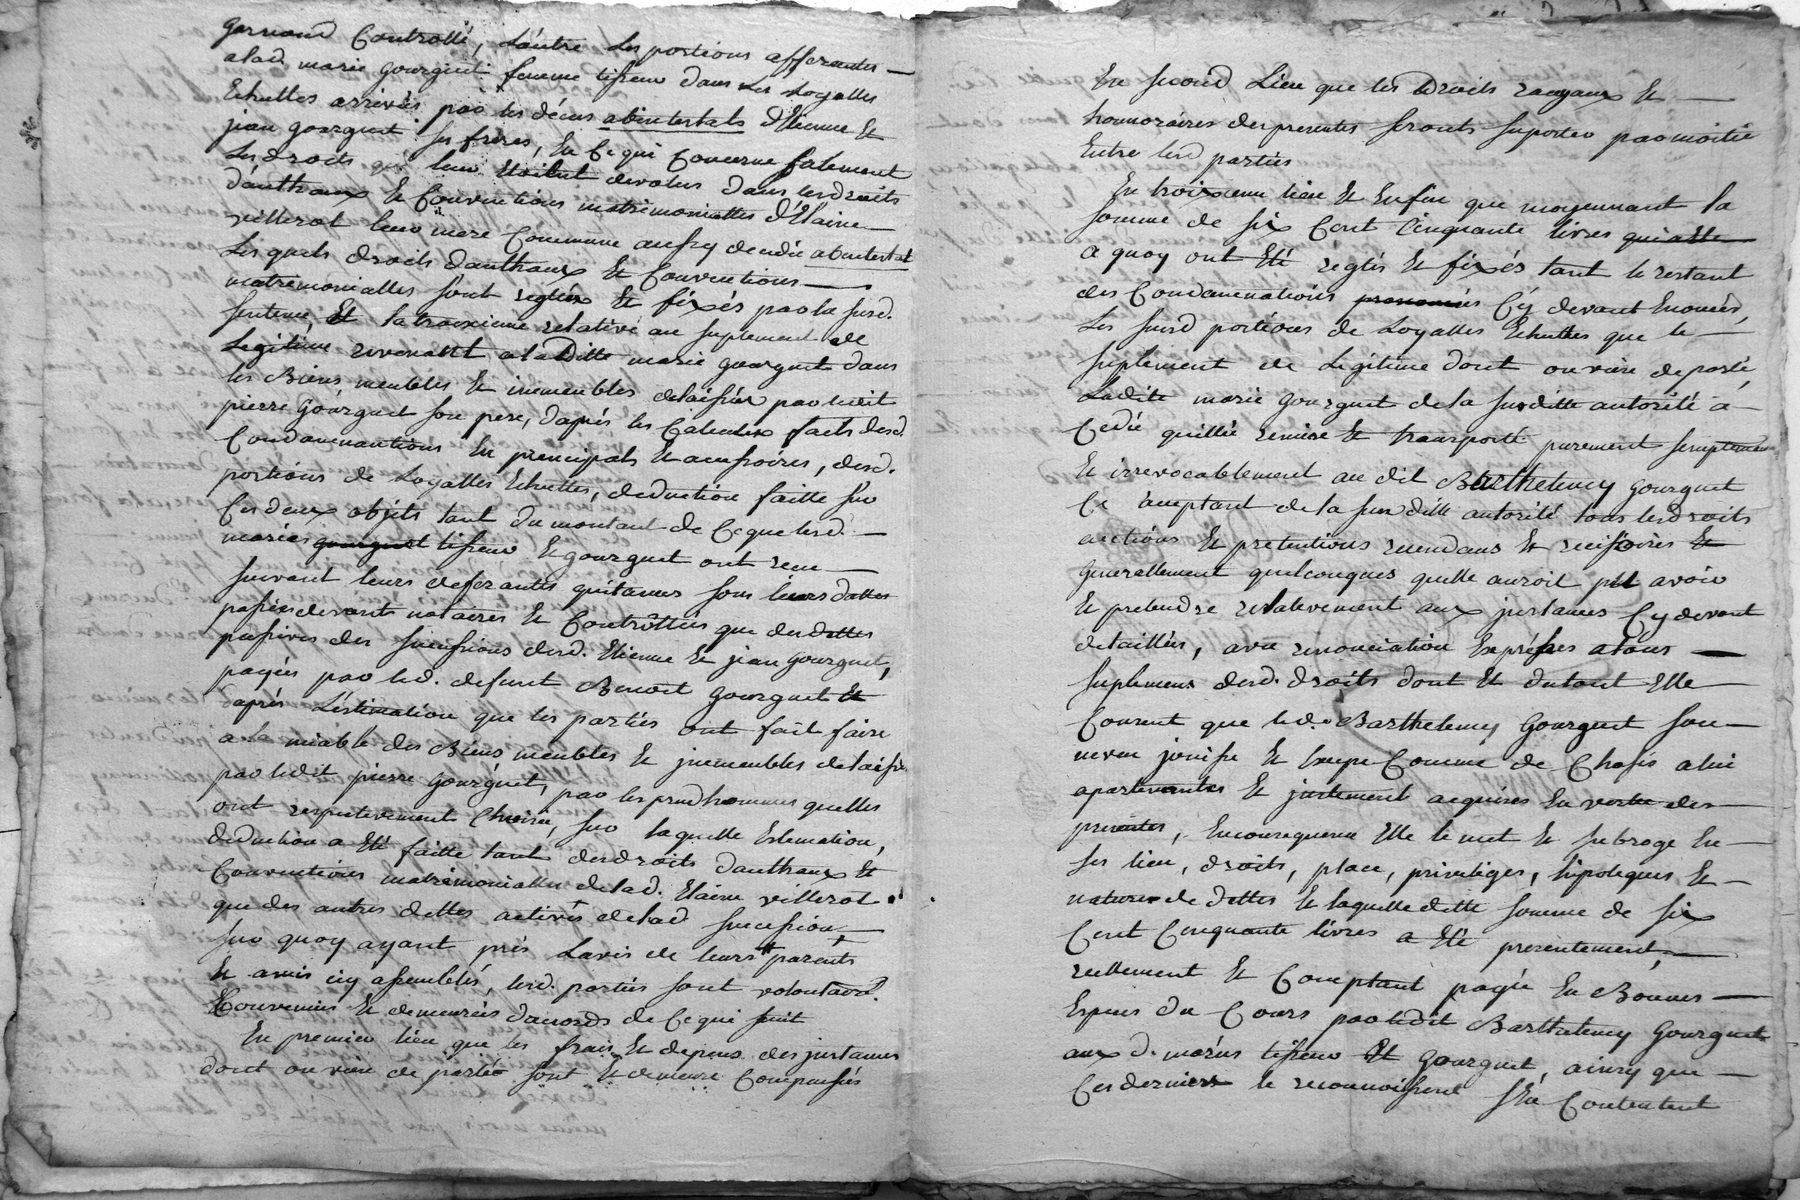 Controllé, Lautre Les portions afferantes —
alad. marie gourguet femme tifseur dans Les Loyalles
Echuttes arrivées par les décus abintestats d'Etienne Et
jean gourguet ses freres, En Ce qui Concerne sulement
Les droits qui leur Etoient devolus dans lesdroits
dauthaux Et Conventions matrimonialles d'Elaine —
villerot leur mere Commune aufsy decedée abintestat
Lesquels droits dauthaux Et Conventions —
matrimonialles sont reglés Et fixés par la susd.
sentence, Et la troixieme relative au suplement de
Legitime revenant a la Ditte marie gourguet dans
les Biens meubles Et immeubles delaifsés par ledit
pierre Gourguet son pere, daprés les Calculs faits desd.
Condamnantions En principals Et accefsoires, desd.
portions de Loyalles Echuttes, deduction faitte sur
Ces deux objets tant du montant de Ce que lesd. —
mariés gourguet tifseur Et gourguet ont reçu —
suivant leurs deferantes quitances sous leurs dattes
pafsées devant notaires Et Contrôllées que des dettes
pafsives des succefsions desd. Etienne Et jean Gourguet,
payées par led. defunt Benoit Gourguet Et
daprés L'éstimation que les parties ont fait faire
a la miable des Biens meubles Et jmmeubles delaifsés
par ledit pierre Gourguet, par les prudhommes quelles
ont respectivement Choisis, sur laquelle Estimation,
deduction a Eté faitte tant desdroits dauthaux Et
Conventions matrimonialles de lad. Elaine villerot
que des autres dettes actives de lad succefsion, —
sur quoy ayant pris Lavis de leurs parents
Et amis icy afsemblés, lesd. parties sont volontairt.
Convenues Et demeurées dacords de Ce qui suit
En premier lieu que les frais Et depens des jnstances
dont on vien de parler sont Et demeure Compensés
En second Lieu que les Droits royaux Et —
honnoraires des presentes seronts suportés par moitié
Entre lesd parties
En troixieme lieu Et Enfin que moyennant la
somme de six Cent Cinquante livres
a quoy ont Eté réglés Et fixés tant le restant
des Condamnations Cÿ devant Enoncés,
Les susd portions de Loyalles Echuttes que le —
suplement de Legitime dont on vien de parlé,
Ladite marie gourguet de la susditte autorité a —
Cedée quittée remise Et transporté purement simplement
Et irrevocablement au dit Barthelemy gourguet
Ce acceptant de la susditte autorité tous lesdroits
actions Et pretentions rescindans Et recifsoires Et
Generallement quelconques quelle auroit put avoir
Et pretendre relativement aux jnstances Cy devant
detaillées, avec renonciation Exprefses a tous —
suplemens desd. droits dont Et du tout Elle —
Consent que led. Barthelemy Gourguet son —
neveu jouifse Et Comme de Choses a lui
apartenantes Et justement acquises En vertu des —
presentes, Enconsequence Elle le met Et subroge En —
ses lieu, droits, place, priviliges, hipoteques Et —
natures de dettes Et laquelle ditte somme de six
Cent Cinquante livres a Eté presentement, —
reellement Et Comptant payée En Bonnes —
Espéces du Cours par ledit Barthelemy Gourguet
aux d. mariés tifseur Et Gourguet, ainsy que —
Ces derniers le reconnoifsent s'En Contentent